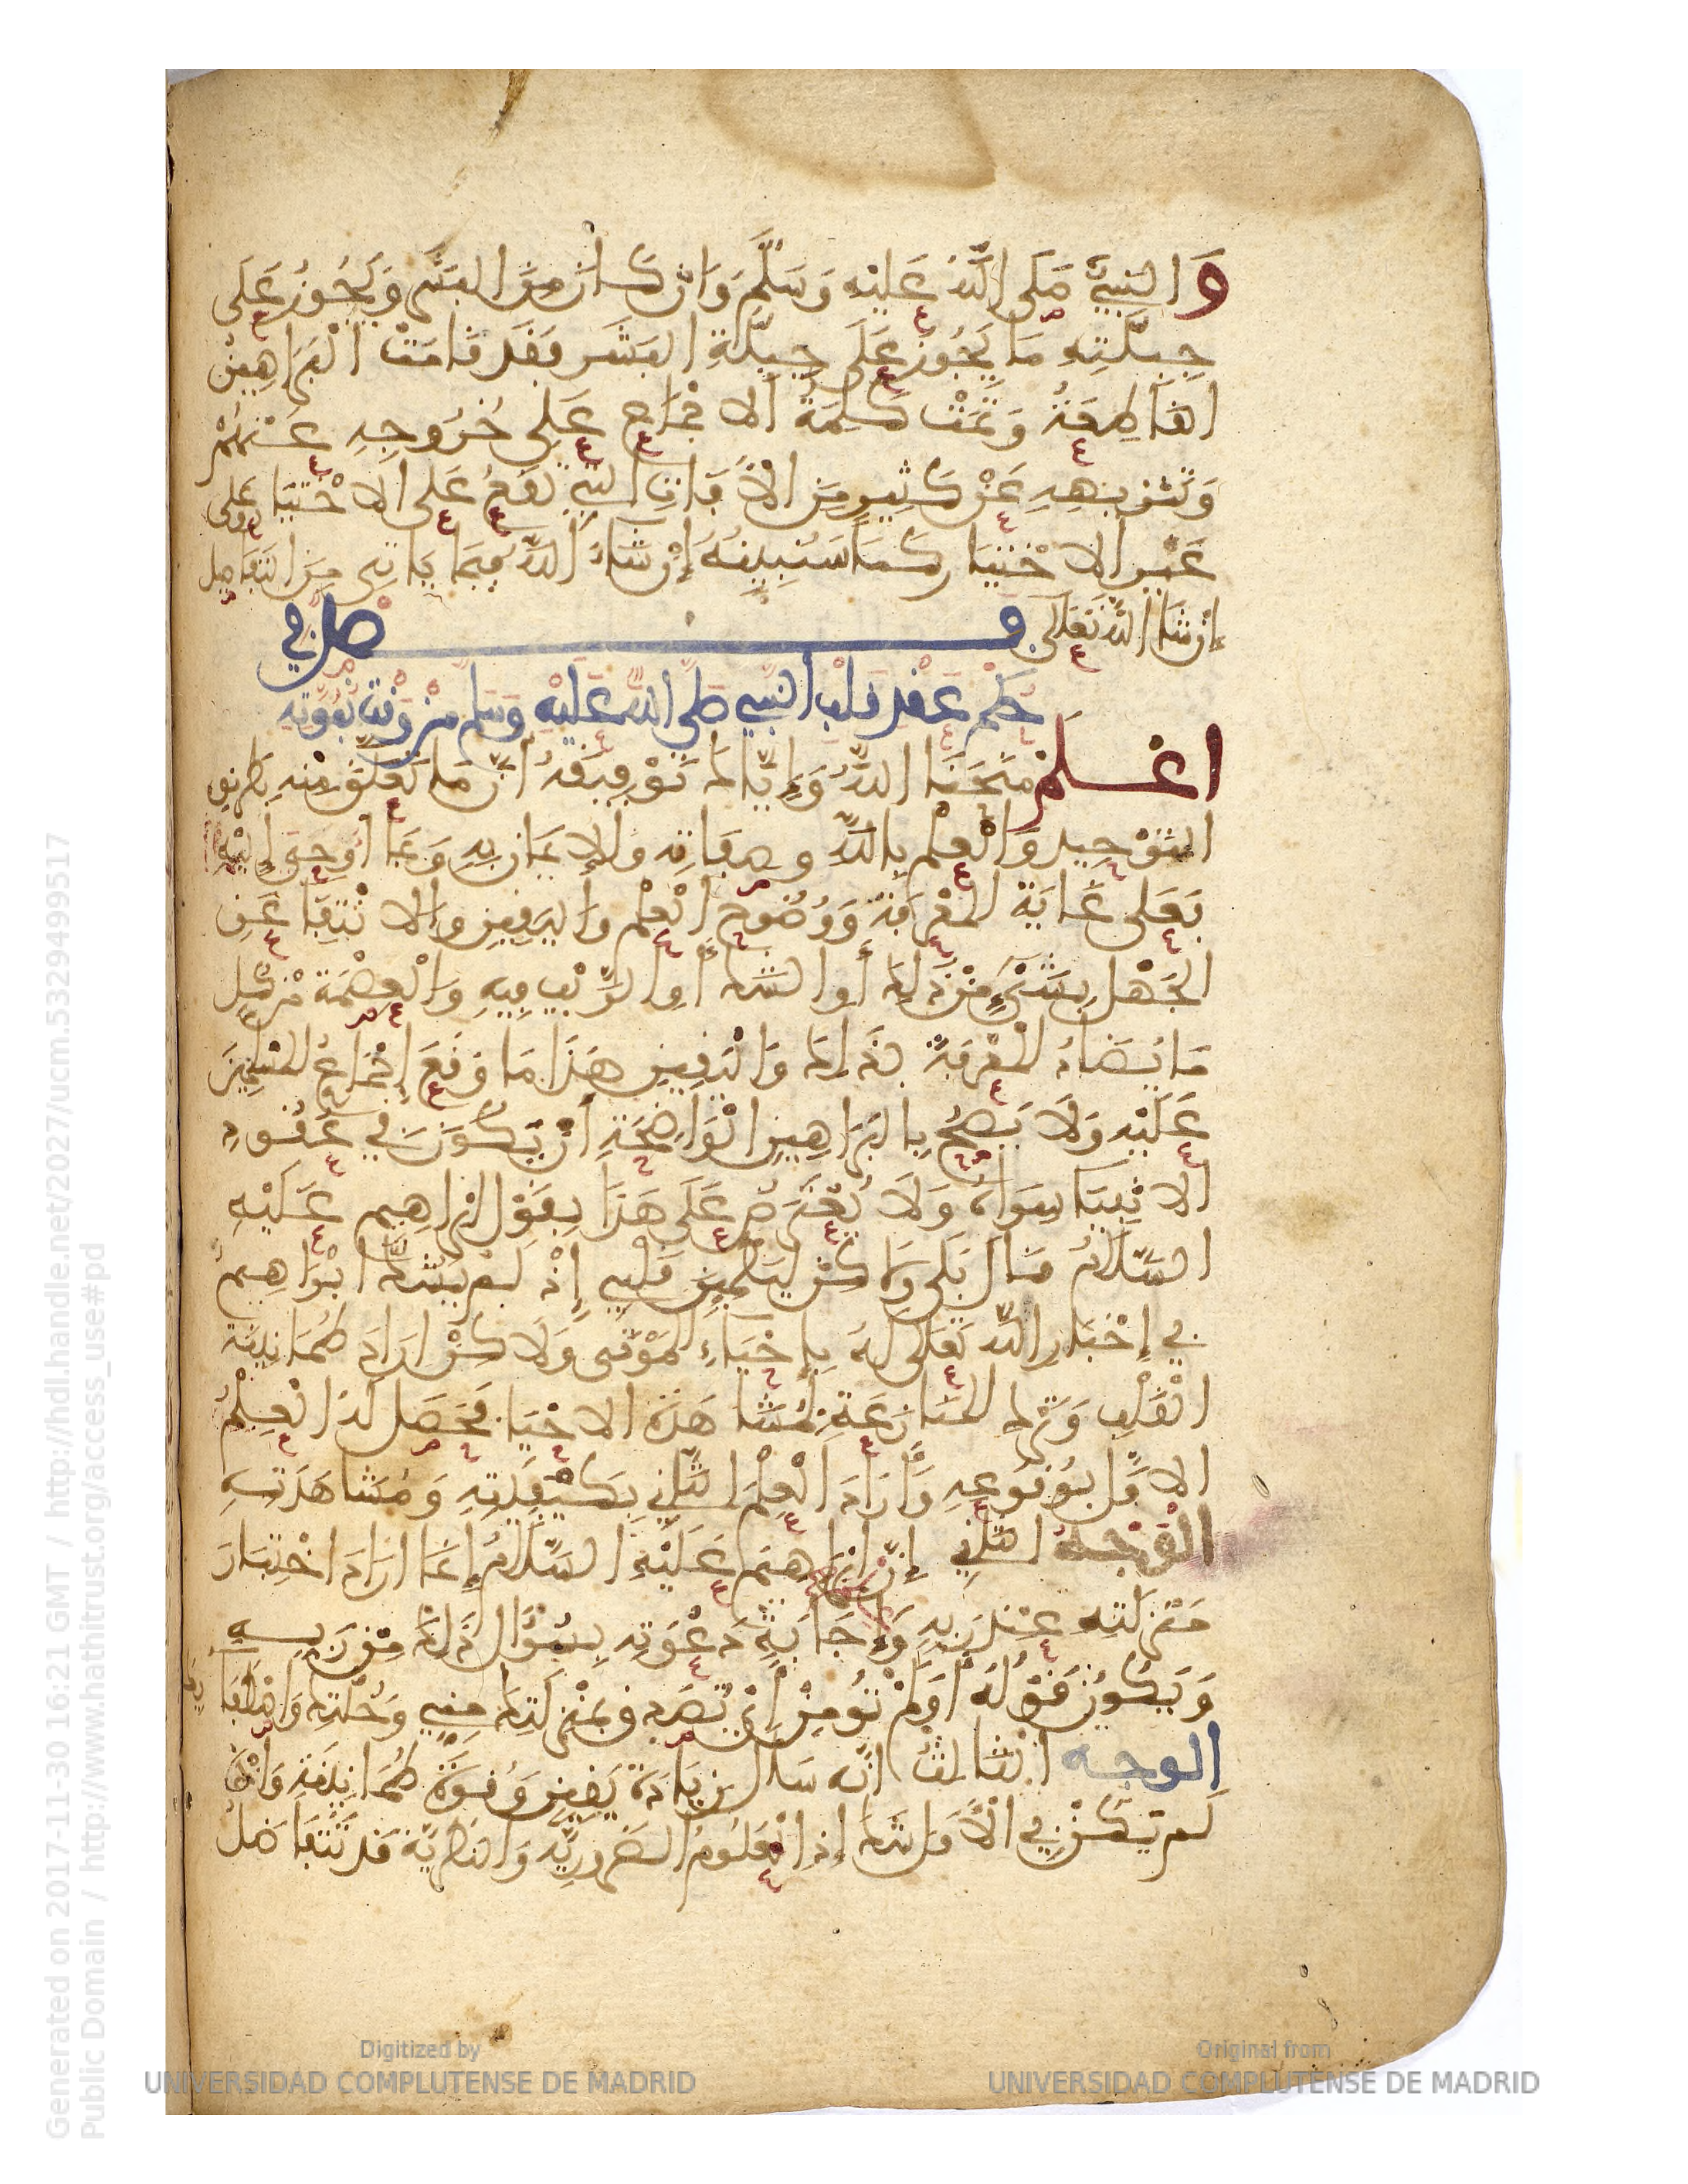 وَالنبيُّ صَلى اللهُ عَليْهِ وَسَلَّمَ وَان كَانَ مِنَ البَشَر وَيَجُوزُ عَلَى
جِبِلَّتِهِ مَا يَجُوزُ عَلَى جِبِلَّةِ البَشَر فقَد قَامَت الْبَرَاهِينُ
القَاطِعَةُ وَتمّتْ كَلِمَة الاجْمَاعِ عَلى خُرُوجِهِ عَنْهُمْ
وَتنزيههِ عَنْ كَثِيرٍ مِنَ الآفَاتِ التِي تَقَعُ عَلَى الاخْتِيَا وعلى
غَيْرِ الاخْتِيَار كَمَا سَنُبِينُهُ إن شَاءَ اللهُ فِيمَا يَاتِي مِنَ التَّفَاصِل
إن شَا الله تَعَالَى فصل في
حكم عقد قلب النبي صلى الله عَليْهِ وسلم من وَقت نُبُوّتِهِ
اعْلَمْ مَنَحَنَا اللهُ وَإيَّاكَ تَوْفِيقَهُ أنَّ مَا تَعَلقَ مِنْهِ بِطَرِيقِ
التَوْحِيد وَالْعِلْم بِاللهِ وصِفَاتِه وَالإيمَان بِهِ وَبمَا أوحِيَ إليْهِ
فَعَلى غَايَةِ المَعْرفَة وَوُضُوح الْعِلْم وَاليَقِين وَالانْتِفَا عَن
الجَهْل بِشَيْءٍ مِنْ ذَلِكَ أو الشك أوِ الرَّيْب فِيهِ وَالْعِصْمَة مِن كُل
مَا يُضَادُ المَعْرفَة بذَلِكَ وَالْيَقِين هَذَا مَا وَقَعَ إجْمَاعُ المُسْلِمِينَ
عَلَيْهِ وَلَا يَصِحُّ بِالبَرَاهِينِ الْوَاضِحَةِ أنْ يَكُونَ في عُقُودِ
الانْبِيَا سِوَاهُ وَلَا يُعْتَرَض عَلَى هَذَا بِقَوْل ابْرَاهِيم عَلَيْهِ
السَّلَامُ قَالَ بَلَى وَلاكِن لِيَطْمَئِنَ قَلْبِي إذْ لَم يَشُكَّ ابْرَاهِيمُ
في إخْبَارِ الله تَعَلَى لَهُ بِإحْيَاءِ المَوْتَى وَلَاكِنْ ارَادَ طُمَانِينَةَ
الْقَلْبِ وَتَرْكَ المُنَازَعَةِ لِمُشَا هَدَة الاحْيَا فَحَصَل لَهُ الْعِلْمُ
الاوَّل بِوُقُوعِهِ وَأرَادَ الْعِلْمَ الثَّانِي بِكَيْفِيَّتِهِ وَمُشَاهَدَتِهِ
الْوَجْهُ الثاني إنّ ابْرَاهِيمَ عَلَيْهِ السَّلَامُ إنمَا ارَادَ اخْتِبَارَ
مَنْزِلَتِهِ عِنْدَ رَبِهِ وَإجَابَةِ دَعْوَتِهِ بِسُؤَال ذَلِكَ مِن رَبِه
وَيَكُون قَوْلُهُ أوَلَمْ تُؤْمِنْ أيْ تُصَدِّق بمَنْزِلَتِكَ مِنِي وَخُلَّتِكَ وَاصْطِفَا
الوجه الثَالِثُ أنّه سَألَ زِيَادَةَ يَقِينٍ وَقُوّةَ طُمَانِينَةٍ وَإنْ
لَم يَكُنْ فِي الأوَّل شَك إذِ الْعُلُومُ الضَّرُورِيَّة وَالنَظَرِيَّة قَدْ تَتَفَاضَلُ
Generated on 2017-11-30 16:21 GMT / http://hdl.handle.net/2027/ucm.5329499517
Public Domain / http://www.hathitrust.org/access_use#pd
Digitized by
UNIVERSIDAD COMPLUTENSE DE MADRID
Original from
UNIVERSIDAD COMPLUTENSE DE MADRID